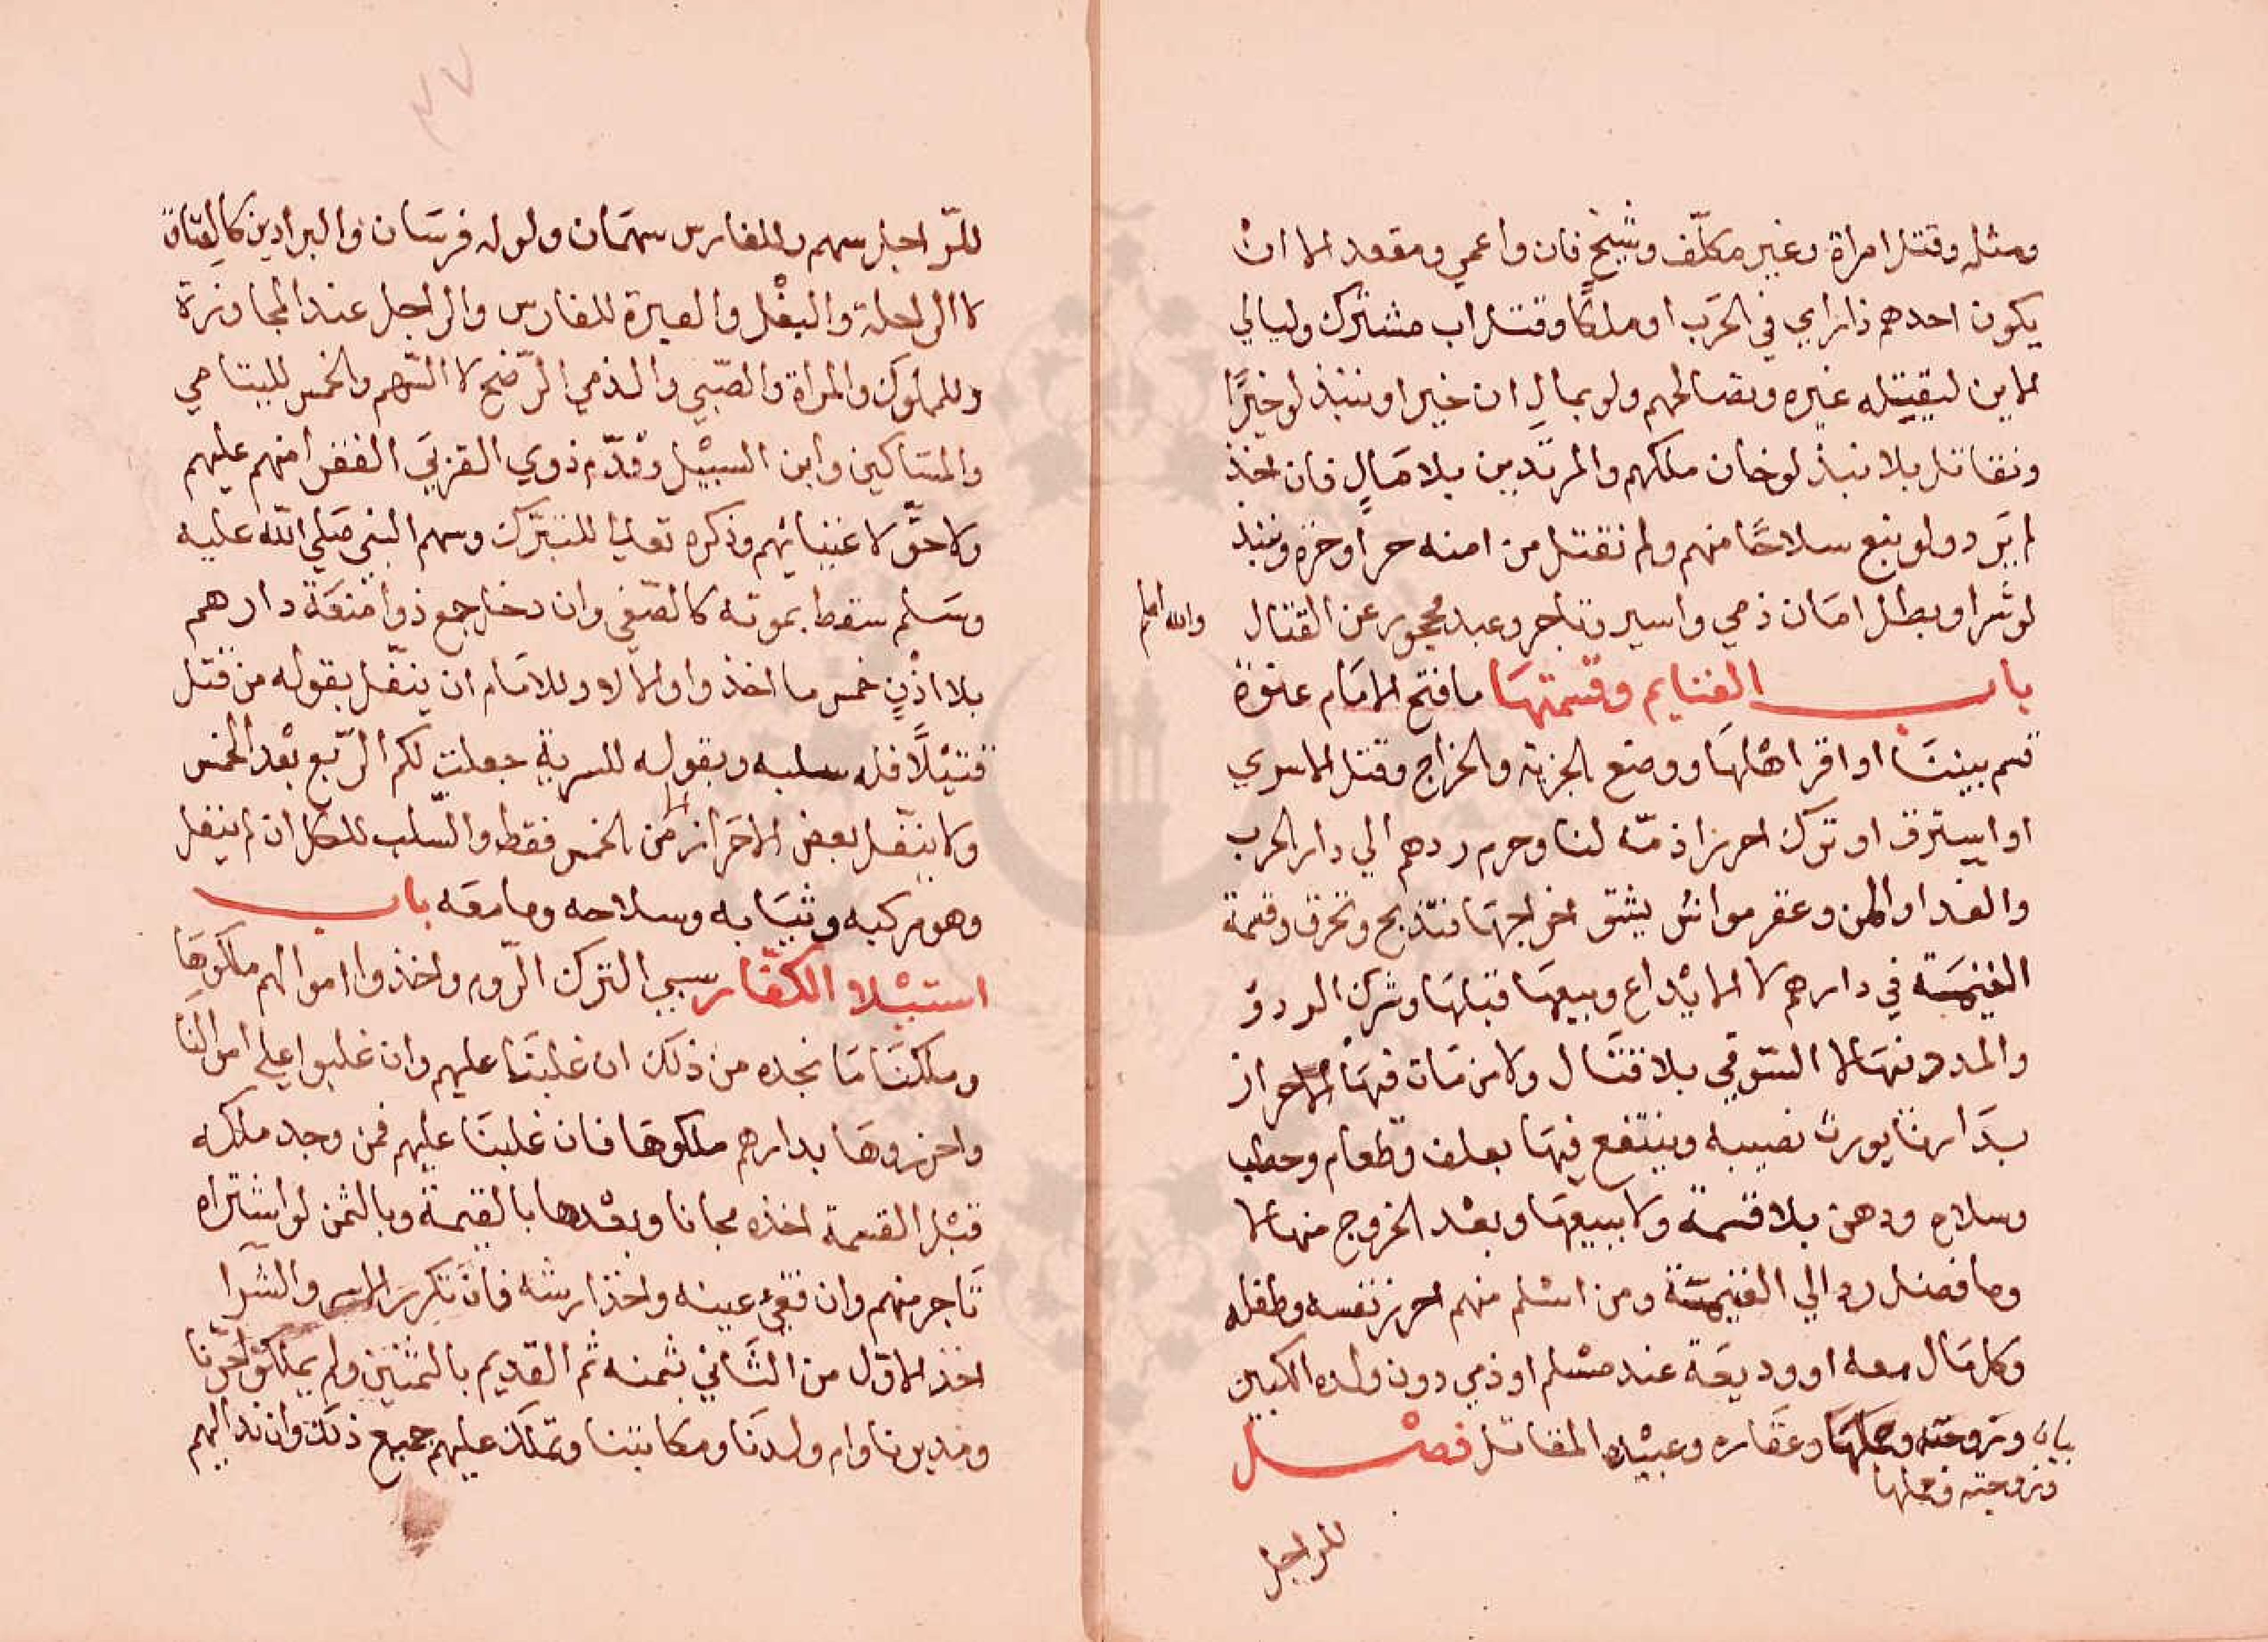 ومثله وقتل امراة وغير مكلّف وشيخ فان واعمي ومقعد الا ان
يكون احدهم ذا راي في الحَرب او ملكًا وقتل اب مشترك وليالي
الابن ليقتله غيره ونصالحهم ولو بمالِ ان خيرا وننبذ لو خيرًا
ونقاتل بلا نبذ لو خان ملكهم والمرتدين بلا مَالٍ فان اخذ
لم يَرد ولو نبع سلاحًا منهم ولم نقتل من امنه حر او حرة وننبذ
لو شرا وبطل امَان ذمي واسير وتاجر وعبد محجور عن القتال والله اعلم
باب الغنايم وقسمتهَا ما فتح الامَام عنوة
قسم بيننَا او اقر اهْلهَا ووضع الجزية والخراج وقتل الاسري
او استرق او ترك احرارا ذمّه لنا وحرم ردهم الي دار الحرب
والفدا والمن وعقر مواش يشق اخراجهَا فتذبح وتحرق وقسمة
الغنيمَة في دارهم لا لايْداع وبيعهَا قبلهَا وشرك الردؤ
والمدد فيهَا لا السّوقي بلا قتَال ولا من مَات فيهَا وبعد الاحراز
بدَارنا يورث نصيبه وينتفع فيهَا بعلف وطَعام وحطب
وسلاح ودهن بلا قسْمة ولا يبيعهَا وبعْد الخروج منها لا
وما فضل رد الي الغنيمَة ومن اسْلم منهم احرز نفسه وطفله
وكل مَال معه او وديعَة عند مسْلم او ذمي دون ولده الكبير
وزوجته وحملهَا وعقَاره وعبْده المقاتل فصْل
بيان
وزوجته وحملها
للراجل
٣٧
للرّاجل سهم وللفارس سهمَان ولو له فرسَان والبرادين كالعِتاق
لا الراحلة والبغْل والعبرة للفارس والراجل عند المجاوزة
وللمملوك والمراة والصّبي والذمي الرّضخ لا السّهم والخمس لليتامي
والمسَاكين وابن السبيْل وقدّم ذوي القربَي الفقرا منهم عليهم
ولا حقّ لاغنيائهم وذكره تعالي للتبرّك وسهم النبي صَلي اللّه عليه
وسَلم سَقط بموته كالصّفي وان دخل جمع ذوا منعَة دارهم
بلا اذْنٍ خمس ما اخذوا والا لا وللامَام ان ينفّل بقوله من قتل
قتيْلًا فله سلبه وبقوله للسرية جعلت لكم الرّبع بعْد الخمس
ولا ينفّل بعض الاحَراز الا من الخمس فقط والسّلب للكل ان لم ينفل
وهو مركبه وثيَابه وسلاحه وما معَه باب
استيْلا الكفّار سبي الترك الرّوم واخذوا اموالهم ملكوهَا
وملكنَا مَا نجده من ذلك ان غلبنَا عليهم وان غلبوا علي اموالنَا
واحرزوهَا بدارهم ملكوهَا فان غلبنَا عليهم فمن وجد ملكه
قبْل القسمة اخذه مجانا وبعْدها بالقيمَة وبالثمن لو اشتراه
تَاجر منهم وان فقيْ عينه واخذ ارشه فان تكرر الاسر والشّرا
اخذ الاوّل من الثَاني بثمنه ثم القديم بالثمَنين ولم يملكوا حرّنا
ومدبرنا وام ولدنَا ومكاتبنا ونملك عليهم جميع ذلك وان ند اليهم